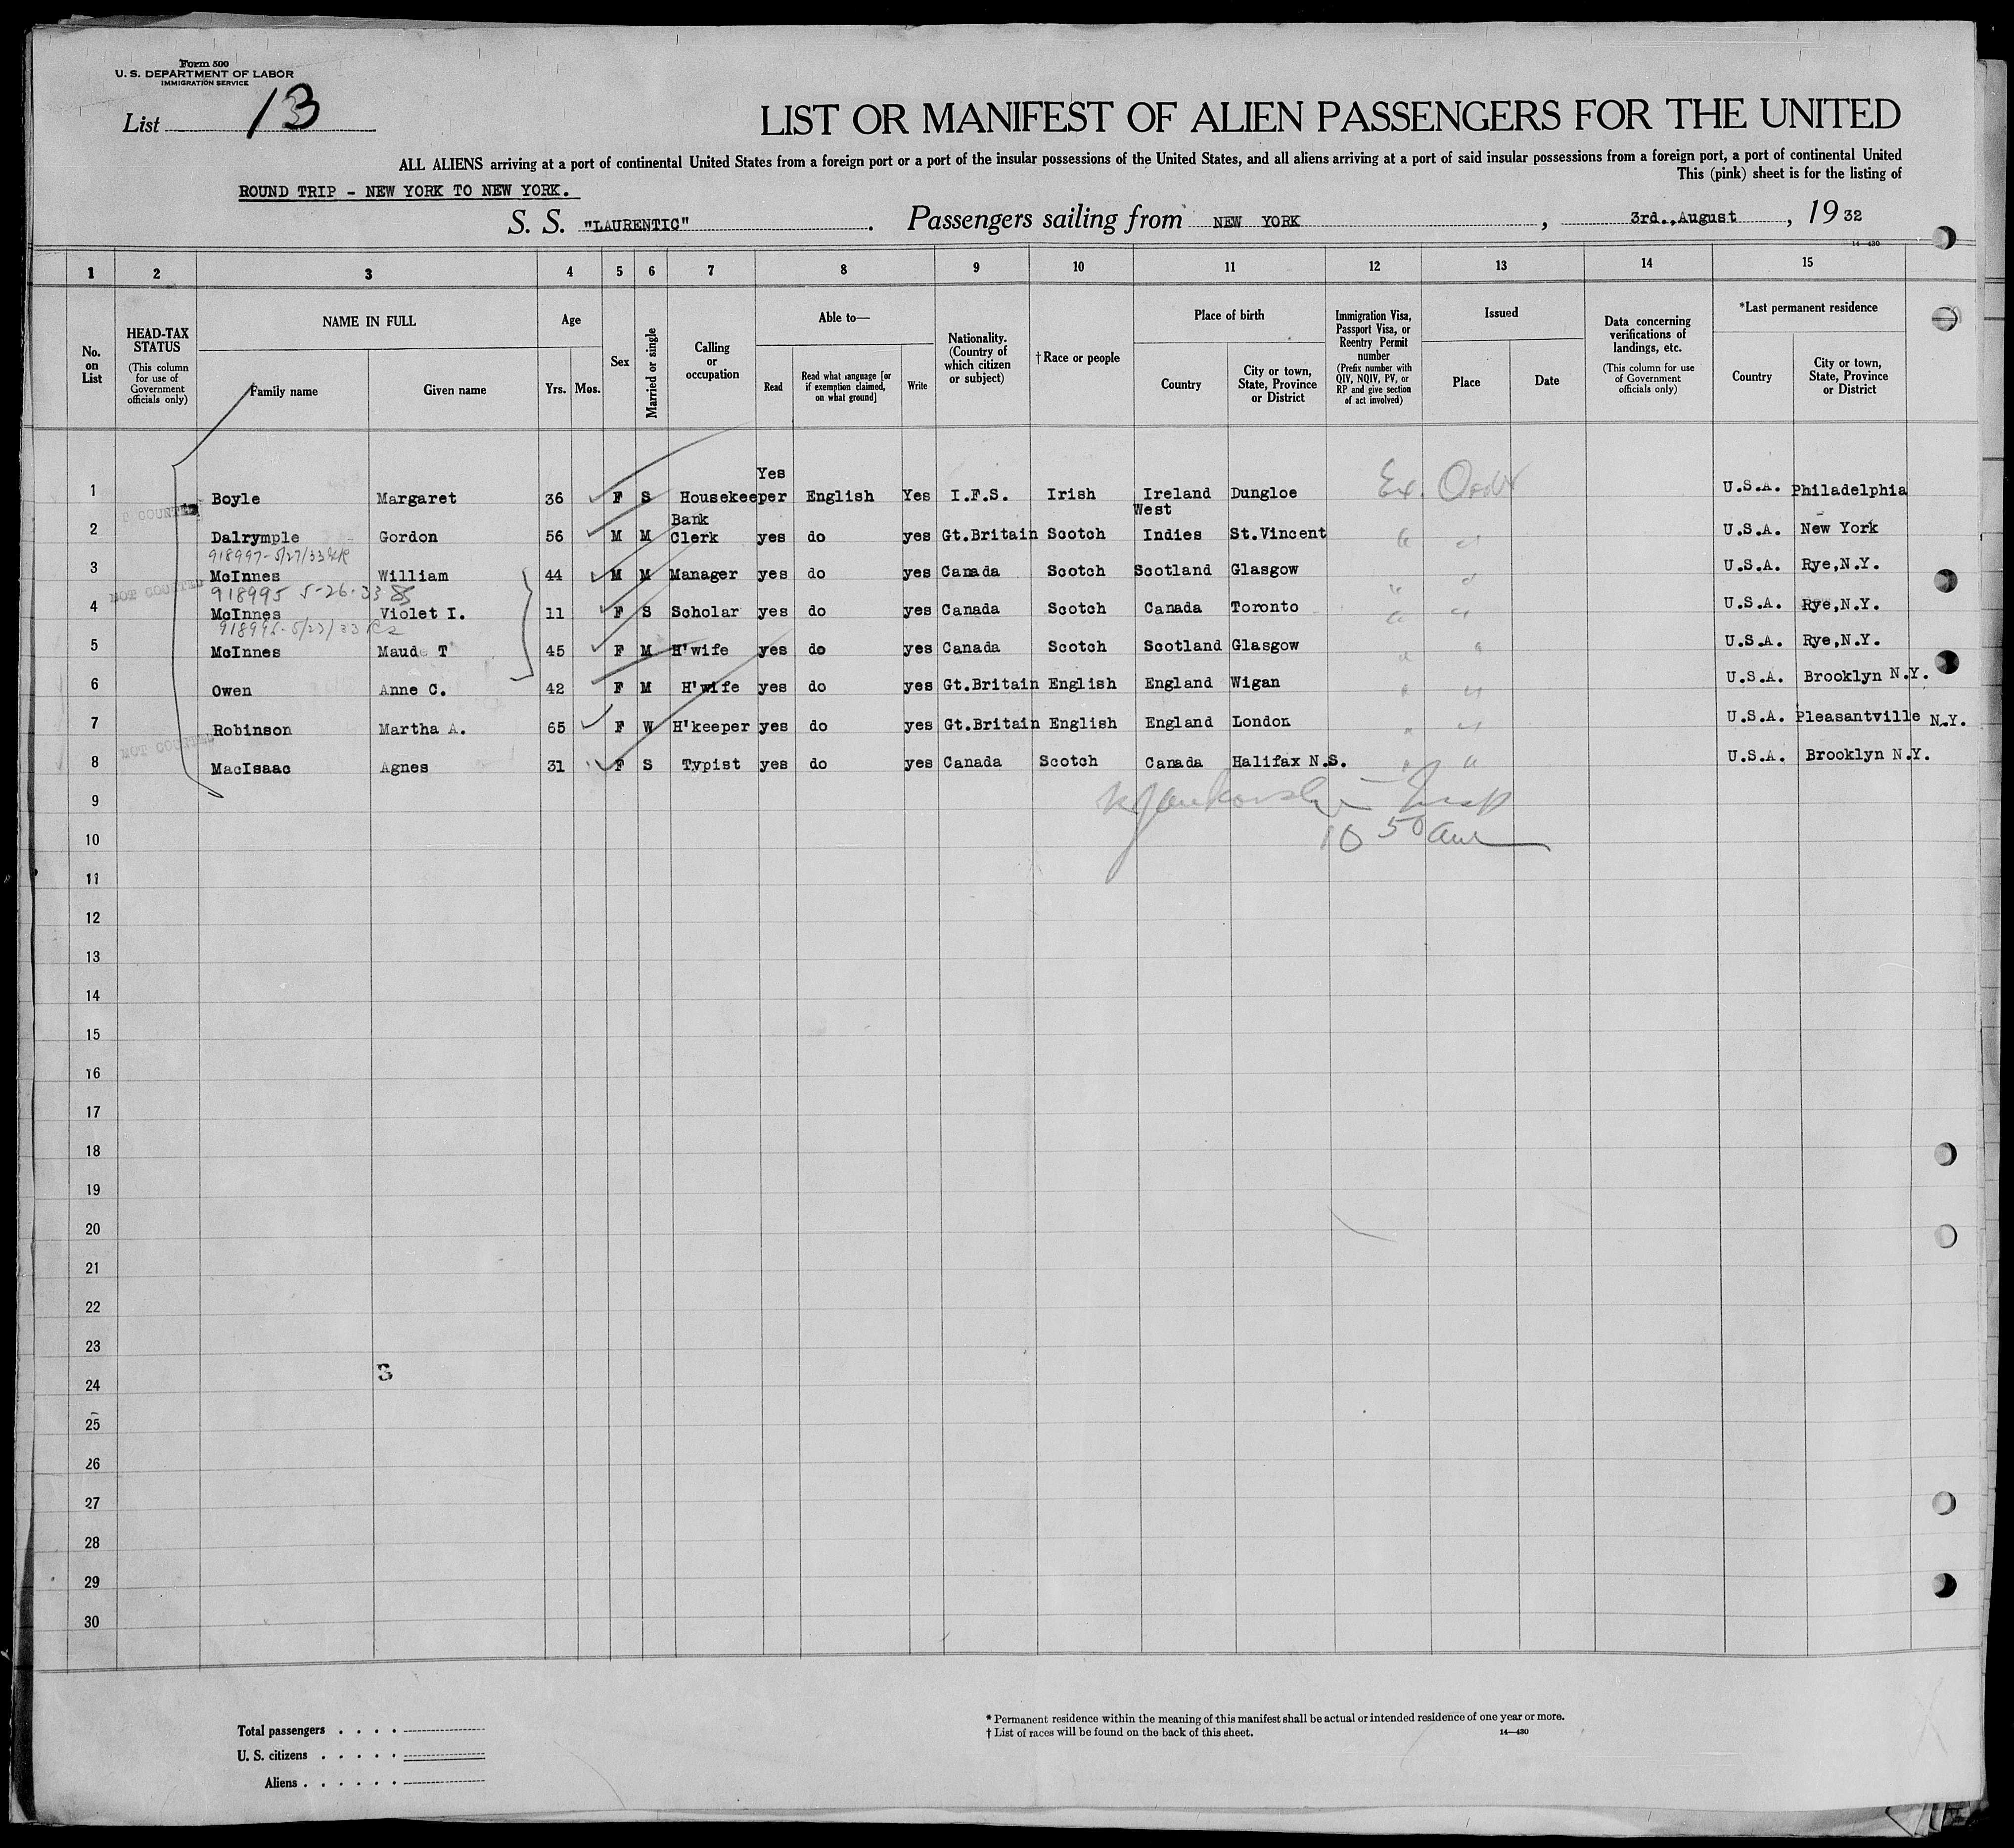 Form 500
U. S. DEPARTMENT OF LABOR
IMMIGRATION SERVICE
List 13
LIST OR MANIFEST OF ALIEN PASSENGERS FOR THE UNITED
ALL ALIENS arriving at a port of continental United States from a foreign port or a port of the insular possessions of the United States, and all aliens arriving at a port of said insular possessions from a foreign port, a port of continental United
This (pink) sheet is for the listing of
ROUND TRIP - NEW YORK TO NEW YORK.
S. S. "LAURENTIC". Passengers sailing from NEW YORK, 3rd.,August, 1932
14—430
1 2 3 4 5 6 7 8 9 10 11 12 13 14 15
No. on List
HEAD-TAX STATUS (This column for use of Government officials only)
NAME IN FULL Family name Given name
Age Yrs. Mos.
Sex
Married or single
Calling or occupation
Able to— Read Read what language [or if exemption claimed, on what ground] Write
Nationality. (Country of which citizen or subject)
† Race or people
Place of birth Country City or town, State, Province or District
Immigration Visa, Passport Visa, or Reentry Permit number (Prefix number with QIV, NQIV, PV, or RP and give section of act involved)
Issued Place Date
Data concerning verifications of landings, etc. (This column for use of Government officials only)
*Last permanent residence Country City or town, State, Province or District
1 Boyle Margaret 36 F S Housekeeper Yes English Yes I.F.S. Irish Ireland Dungloe Ex. U.S.A. Philadelphia
2 Dalrymple Gordon 56 M M Bank Clerk yes do yes Gt.Britain Scotch West Indies St.Vincent U.S.A. New York
918997-5/27/33
3 McInnes William 44 M M Manager yes do yes Canada Scotch Scotland Glasgow U.S.A. Rye,N.Y.
NOT COUNTED
918995 5-26-33
4 McInnes Violet I. 11 F S Scholar yes do yes Canada Scotch Canada Toronto U.S.A. Rye,N.Y.
5 McInnes Maude T 45 F M H'wife yes do yes Canada Scotch Scotland Glasgow U.S.A. Rye,N.Y.
6 Owen Anne C. 42 F M H'wife yes do yes Gt.Britain English England Wigan U.S.A. Brooklyn N.Y.
7 Robinson Martha A. 65 F W H'keeper yes do yes Gt.Britain English England London U.S.A. Pleasantville N.Y.
NOT COUNTED
8 MacIsaac Agnes 31 F S Typist yes do yes Canada Scotch Canada Halifax N.S. U.S.A. Brooklyn N.Y.
9
Insp
10
10 50 am
11
12
13
14
15
16
17
18
19
20
21
22
23
S
24
25
26
27
28
29
30
Total passengers . . . .
U. S. citizens . . . . .
Aliens . . . . . .
* Permanent residence within the meaning of this manifest shall be actual or intended residence of one year or more.
† List of races will be found on the back of this sheet. 14—430